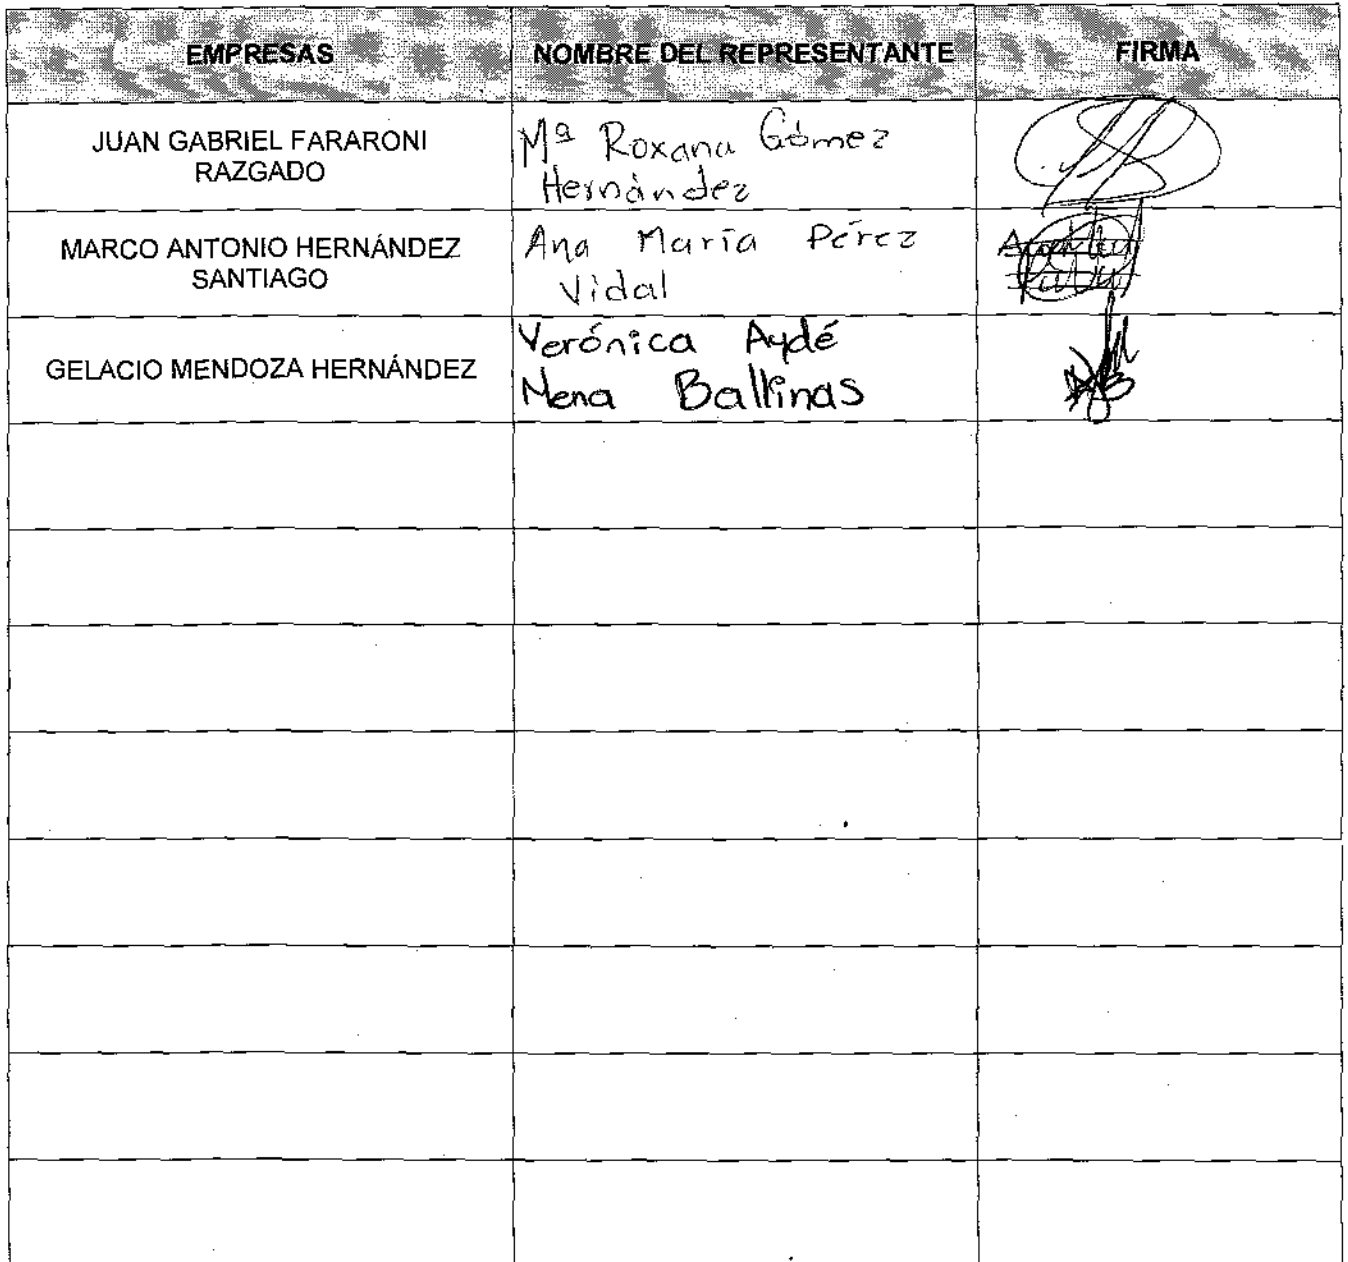 EMPRESAS NOMBRE DEL REPRESENTANTE FIRMA
JUAN GABRIEL FARARONI
RAZGADO
Mª Roxana Gómez
Hernández
MARCO ANTONIO HERNÁNDEZ
SANTIAGO
Ana María Pérez
Vidal
GELACIO MENDOZA HERNÁNDEZ
Verónica Aydé
Mena Ballinas